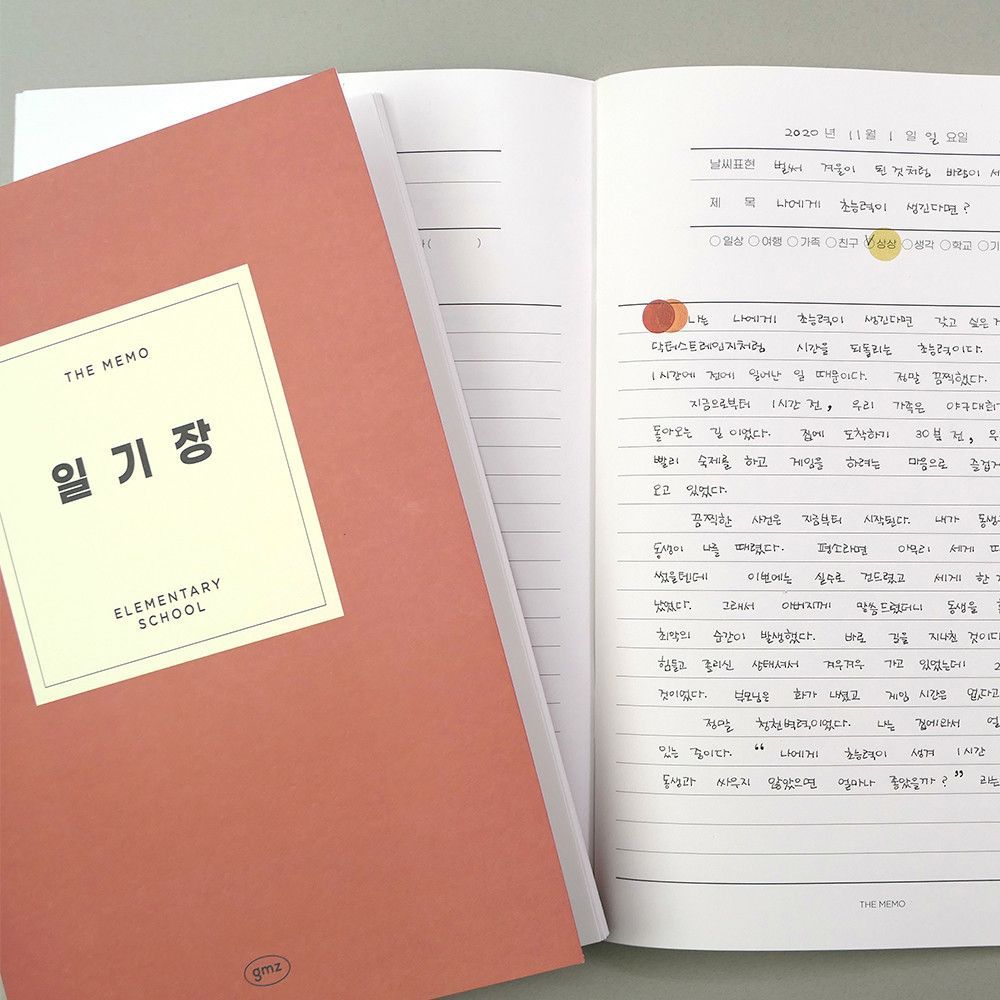 THE MEMO
일기장
ELEMENTARY
SCHOOL
gmz
( )
2020 년 11 월 1 일 일 요일
날씨표현 벌써 겨울이 된 것처럼 바람이 세
제 목 나에게 초능력이 생긴다면?
○일상 ○여행 ○가족 ○친구 ○상상 ○생각 ○학교 ○기
나는 나에게 초능력이 생긴다면 갖고 싶은
닥터스트레인지처럼 시간을 되돌리는 초능력이다.
1시간에 전에 일어난 일 때문이다. 정말 끔찍했다.
지금으로부터 1시간 전, 우리 가족은 야구대회
돌아오는 길이었다. 집에 도착하기 30분 전, 우
빨리 숙제를 하고 게임을 하려는 마음으로 즐겁게
오고 있었다.
끔찍한 사건은 지금부터 시작된다. 내가 동생
동생이 나를 때렸다. 평소라면 아무리 세게 때
썼을텐데 이번에는 실수로 건드렸고 세게 한
났었다. 그래서 아버지께 말씀드렸더니 동생을
최악의 순간이 발생했다. 바로 길을 지나친 것이다
힘들고 졸리신 상태셔서 겨우겨우 가고 있었는데 2
것이었다. 부모님은 화가 나셨고 게임 시간은 없다고
정말 청천벽력이었다. 나는 집에와서
있는 중이다. “ 나에게 초능력이 생겨 1시간
동생과 싸우지 않았으면 얼마나 좋았을까? ” 라는
THE MEMO